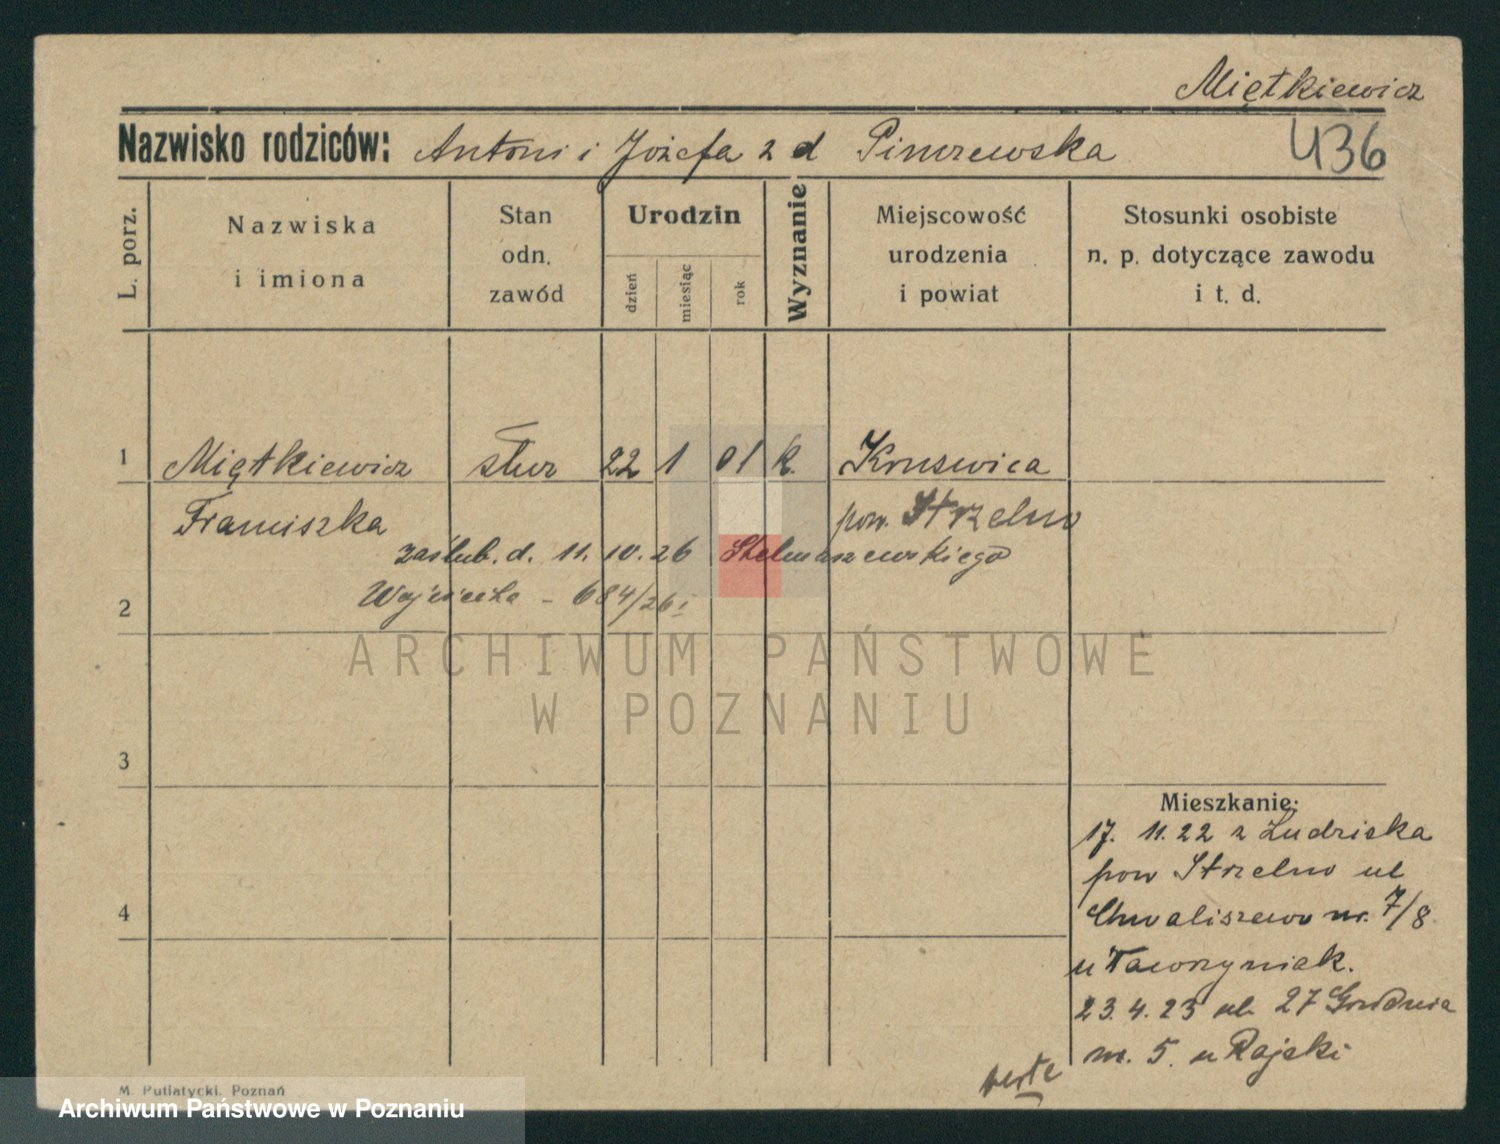 Miętkiewicz
Nazwisko rodziców: Antoni i Józefa z d Pinczewska
436
L. porz.
Nazwiska
i imiona
Stan
odn.
zawód
Urodzin
dzień
miesiąc
rok
Wyznanie
Miejscowość
urodzenia
i powiat
Stosunki osobiste
n. p. dotyczące zawodu
i t. d.
1 Miętkiewicz służ 22 1 01 k. Kruszwica
Franciszka pow. Strzelno
zaślub. d. 11.10.26 Stelmaszewskiego
2 Wojciecha - 684/26
3
4
Mieszkanie:
17. 11. 22 z Ludziska
pow Strzelno ul
Chwaliszewo nr. 7/8
u Taworzyniak.
23. 4. 23 ul. 27 Grudnia
nr. 5. u Rajski
verte
M. Putiatycki, Poznań
ARCHIWUM PAŃSTWOWE
W POZNANIU
Archiwum Państwowe w Poznaniu